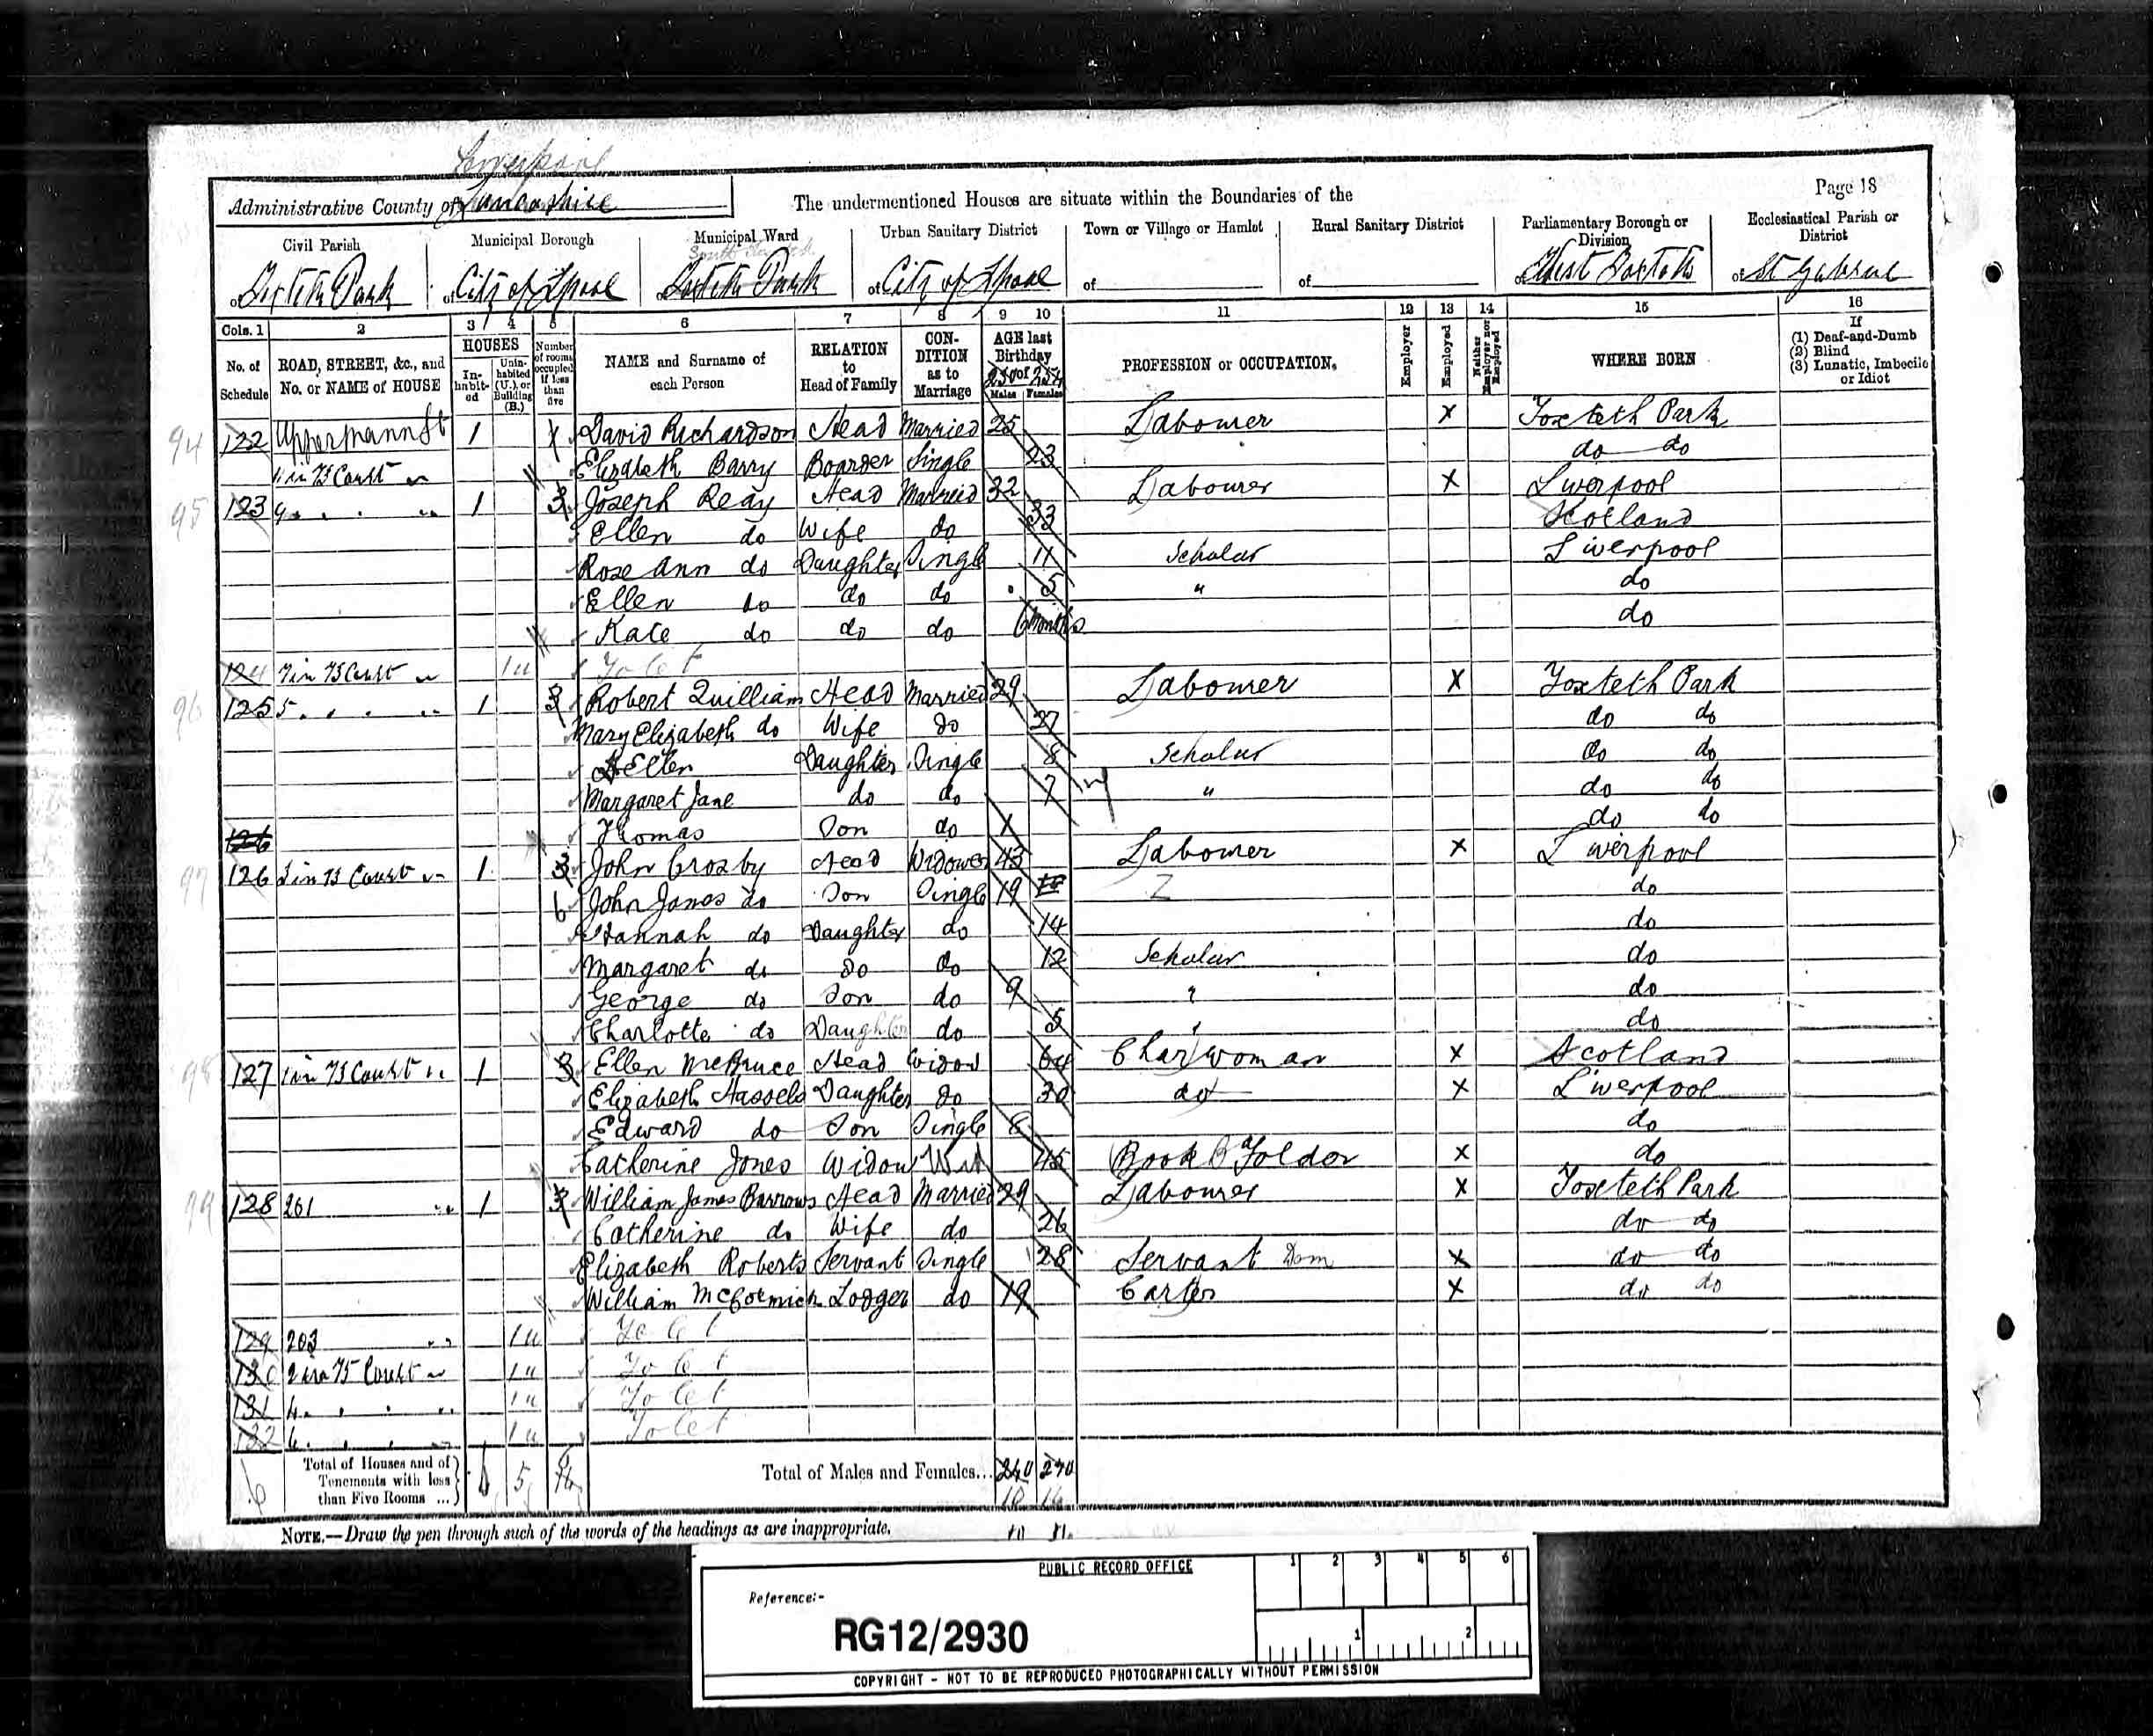 Liverpool
Administrative County of Lancashire The undermentioned Houses are situate within the Boundaries of the Page 18
Civil Parish Municipal Borough Municipal Ward Urban Sanitary District Town or Village or Hamlet Rural Sanitary District Parliamentary Borough or Division Ecclesiastical Parish or District
of Toxteth Park of City of Lpool Toxteth Park of City of Lpool of of West Toxteth of St Gabriel
Cols. 1 2 3 4 5 6 7 8 9 10 11 12 13 14 15 16
No. of Schedule ROAD, STREET, &c., and No. or NAME of HOUSE HOUSES Inhabited Uninhabited (U.), or Building (B.) Number of rooms occupied if less than five NAME and Surname of each Person RELATION to Head of Family CONDITION as to Marriage AGE last Birthday of Males Females PROFESSION or OCCUPATION. Employer Employed Neither Employer nor Employed WHERE BORN If (1) Deaf-and-Dumb (2) Blind (3) Lunatic, Imbecile or Idiot
94 122 Upper Mann St 1 David Richardson Head Married 25 Labourer X Toxteth Park
11 in 75 Court Elizabeth Barry Boarder Single 23 do do
95 123 9 1 3 Joseph Reay Head Married 32 Labourer X Liverpool
Ellen do Wife do 33 Scotland
Rose Ann do Daughter Single 11 Scholar Liverpool
Ellen do do do 5 " do
Kate do do do 6 Months do
124 7 in 75 Court 1 u To Let
96 125 5 1 3 Robert Quilliam Head Married 29 Labourer X Toxteth Park
Mary Elizabeth do Wife do 27 do do
Ellen Daughter Single 8 Scholar do do
Margaret Jane do do 7 " do do
126 Thomas Son do do do
97 126 3 in 75 Court 1 3 John Crosby Head Widower 43 Labourer X Liverpool
6 John James do Son Single 19 do
Hannah do Daughter do 14 do
Margaret do do do 12 Scholar do
George do Son do 9 " do
Charlotte do Daughter do 5 " do
98 127 1 in 75 Court 1 3 Ellen McBruce Head Widow 64 Charwoman X Scotland
Elizabeth Hassels Daughter do 30 do X Liverpool
Edward do Son Single 8 do
Catherine Jones Widow 45 Book Folder X do
99 128 201 1 3 William James Barrows Head Married 29 Labourer X Toxteth Park
Catherine do Wife do 26 do do
Elizabeth Roberts Servant Single 28 Servant Dom X do do
William McCormick Lodger do 19 Carter X do do
129 203 1 u To Let
130 2 in 75 Court 1 u To Let
131 4 1 u To Let
132 6 1 u To Let
6 Total of Houses and of Tenements with less than Five Rooms ... 6 5 Total of Males and Females...
10 16
NOTE.—Draw the pen through such of the words of the headings as are inappropriate.
PUBLIC RECORD OFFICE 1 2 3 4 5 6
Reference:-
RG12/2930 1 2
COPYRIGHT - NOT TO BE REPRODUCED PHOTOGRAPHICALLY WITHOUT PERMISSION